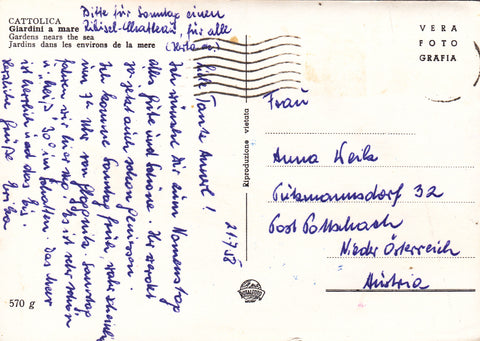 CATTOLICA
Giardini a mare
Gardens nears the sea
Jardins dans les environs de la mere
Bitte für Sonntag einen
für alle
VERA
FOTO
GRAFIA
Riproduzione vietata
21.7.58
Liebe Tante Anni!
Ich wünsche Dir zum Namenstag
alles Gute und Schöne. Ihr werdet
es jetzt auch schon genießen.
Ich komme Sonntag früh, wahrscheinlich
um 7h Uhr von Gloggnitz. Samstag
fahren wir hier weg. Es ist sehr schön
u. heiß, 30° im Schatten. Das Meer
ist herrlich und das Eis.
Herzliche Grüße
Frau
Anna
32
Post Pottschach
Nieder Österreich
Austria
570 g